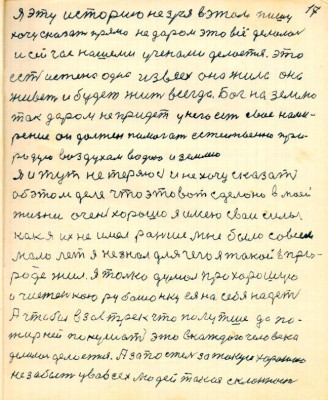 17
Я эту историю не зря в этом пишу
хочу сказать прямо не даром это всё делалось
и сейчас нашеми учеными делается. Это
есть истено одно из всех она жила она
живет и будет жит всегда. Бог на землю
так даром не придет у него есть свое наме-
рение он должен помогат естественно при-
родую воздухам водою и землю
Я и тут не теряюсь и не хочу сказат
об этом деля что это вот сделоно в моей
жизни очен хорошо я имею сваи силы
как я их не имел ранше мне было совсем
мало лет я не знал для чего я такой в при-
роде жил. Я толко думал про хорошую
о чистенкою рубашонку ея на себя надет
А чтобы в завтрек что полутше да по-
жирней покушат это в каждого человека
делалось делается. А за то тем за такую хорошою
не забыт у во всех людей такая склонност